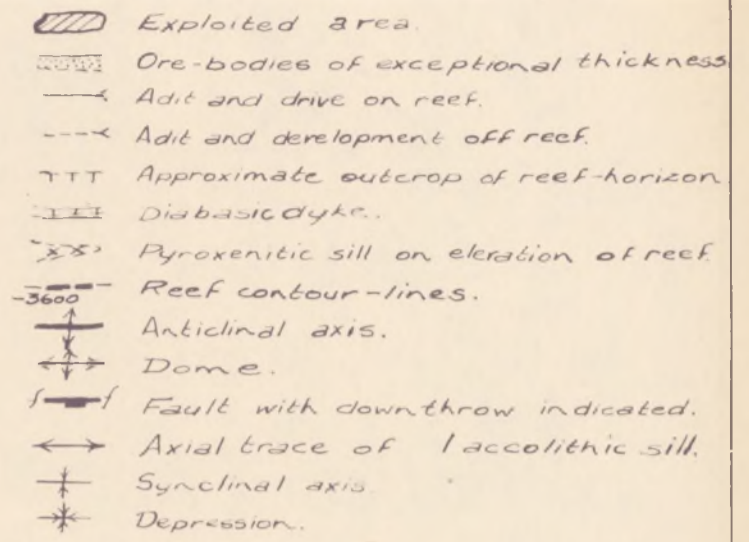 Exploited area.
Ore-bodies of exceptional thickness
Adit and drive on reef.
Adit and development off reef.
Approximate outcrop of reef-horizon
Diabasic dyke.
Pyroxenitic sill on elevation of reef.
Reef contour-lines.
-3600
Anticlinal axis.
Dome.
Fault with downthrow indicated.
Axial trace of laccolithic sill.
Synclinal axis
Depression.